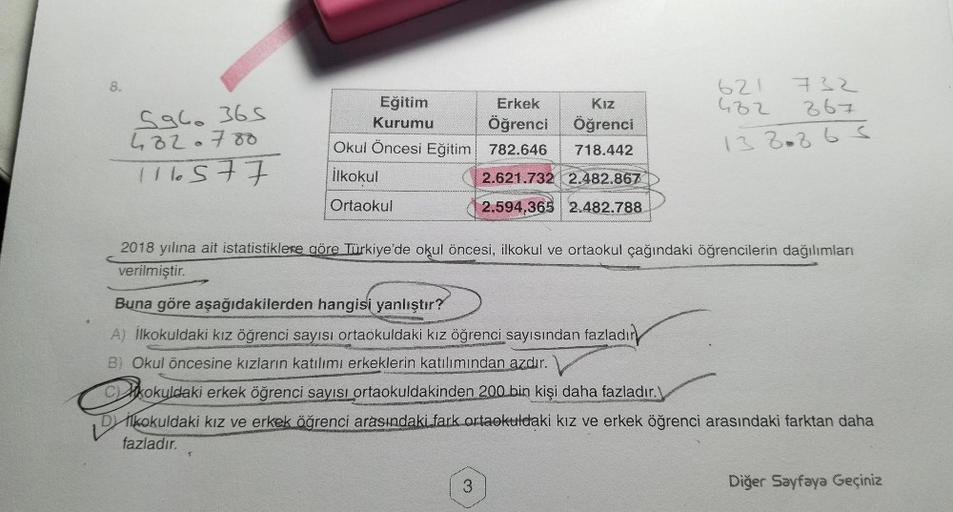 8.
594. 365
482.788
111.577
621 732
482 867
138.865
Eğitim Kurumu Erkek Öğrenci Kız Öğrenci
Okul Öncesi Eğitim 782.646 718.442
İlkokul 2.621.732 2.482.867
Ortaokul 2.594,365 2.482.788
2018 yılına ait istatistiklere göre Türkiye'de okul öncesi, ilkokul ve ortaokul çağındaki öğrencilerin dağılımları
verilmiştir.
Buna göre aşağıdakilerden hangisi yanlıştır?
A) İlkokuldaki kız öğrenci sayısı ortaokuldaki kız öğrenci sayısından fazladır.
B) Okul öncesine kızların katılımı erkeklerin katılımından azdır.
C) İlkokuldaki erkek öğrenci sayısı ortaokuldakinden 200 bin kişi daha fazladır.
D) İlkokuldaki kız ve erkek öğrenci arasındaki fark ortaokuldaki kız ve erkek öğrenci arasındaki farktan daha
fazladır.
3
Diğer Sayfaya Geçiniz